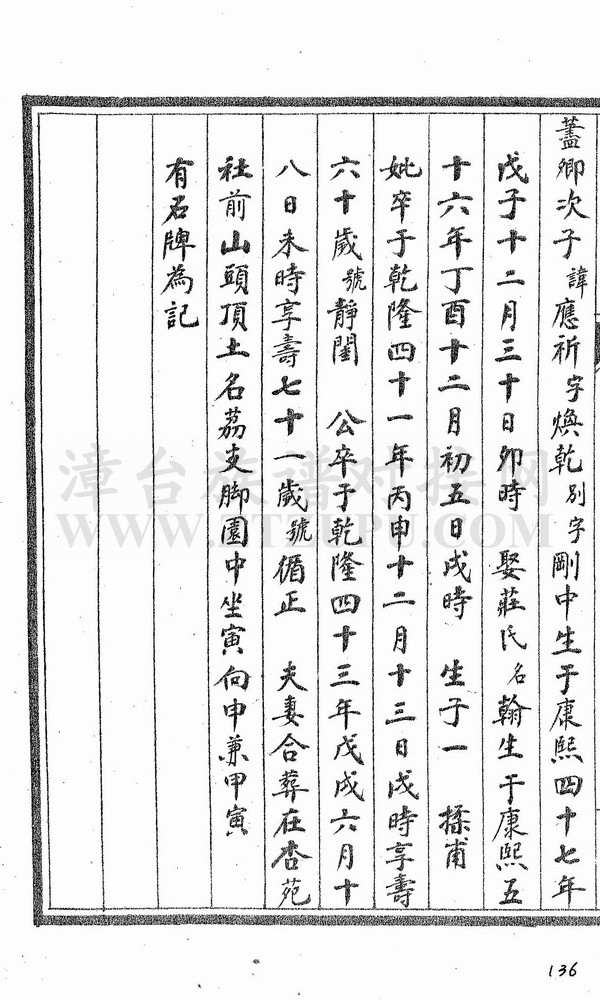 藎卿次子諱應祈字煥乾別字剛中生于康熙四十七年
戊子十二月三十日卯時 娶莊氏名翰生于康熙五
十六年丁酉十二月初五日戌時 生子一 揉甫
妣卒于乾隆四十一年丙申十二月十三日戌時享壽
六十歲號靜閨 公卒于乾隆四十三年戊戌六月十
八日未時享壽七十一歲號循正 夫妻合葬在杏苑
社前山頭頂土名荔支脚園中坐寅向申兼甲寅
有石牌為記
漳台族谱对接网
136